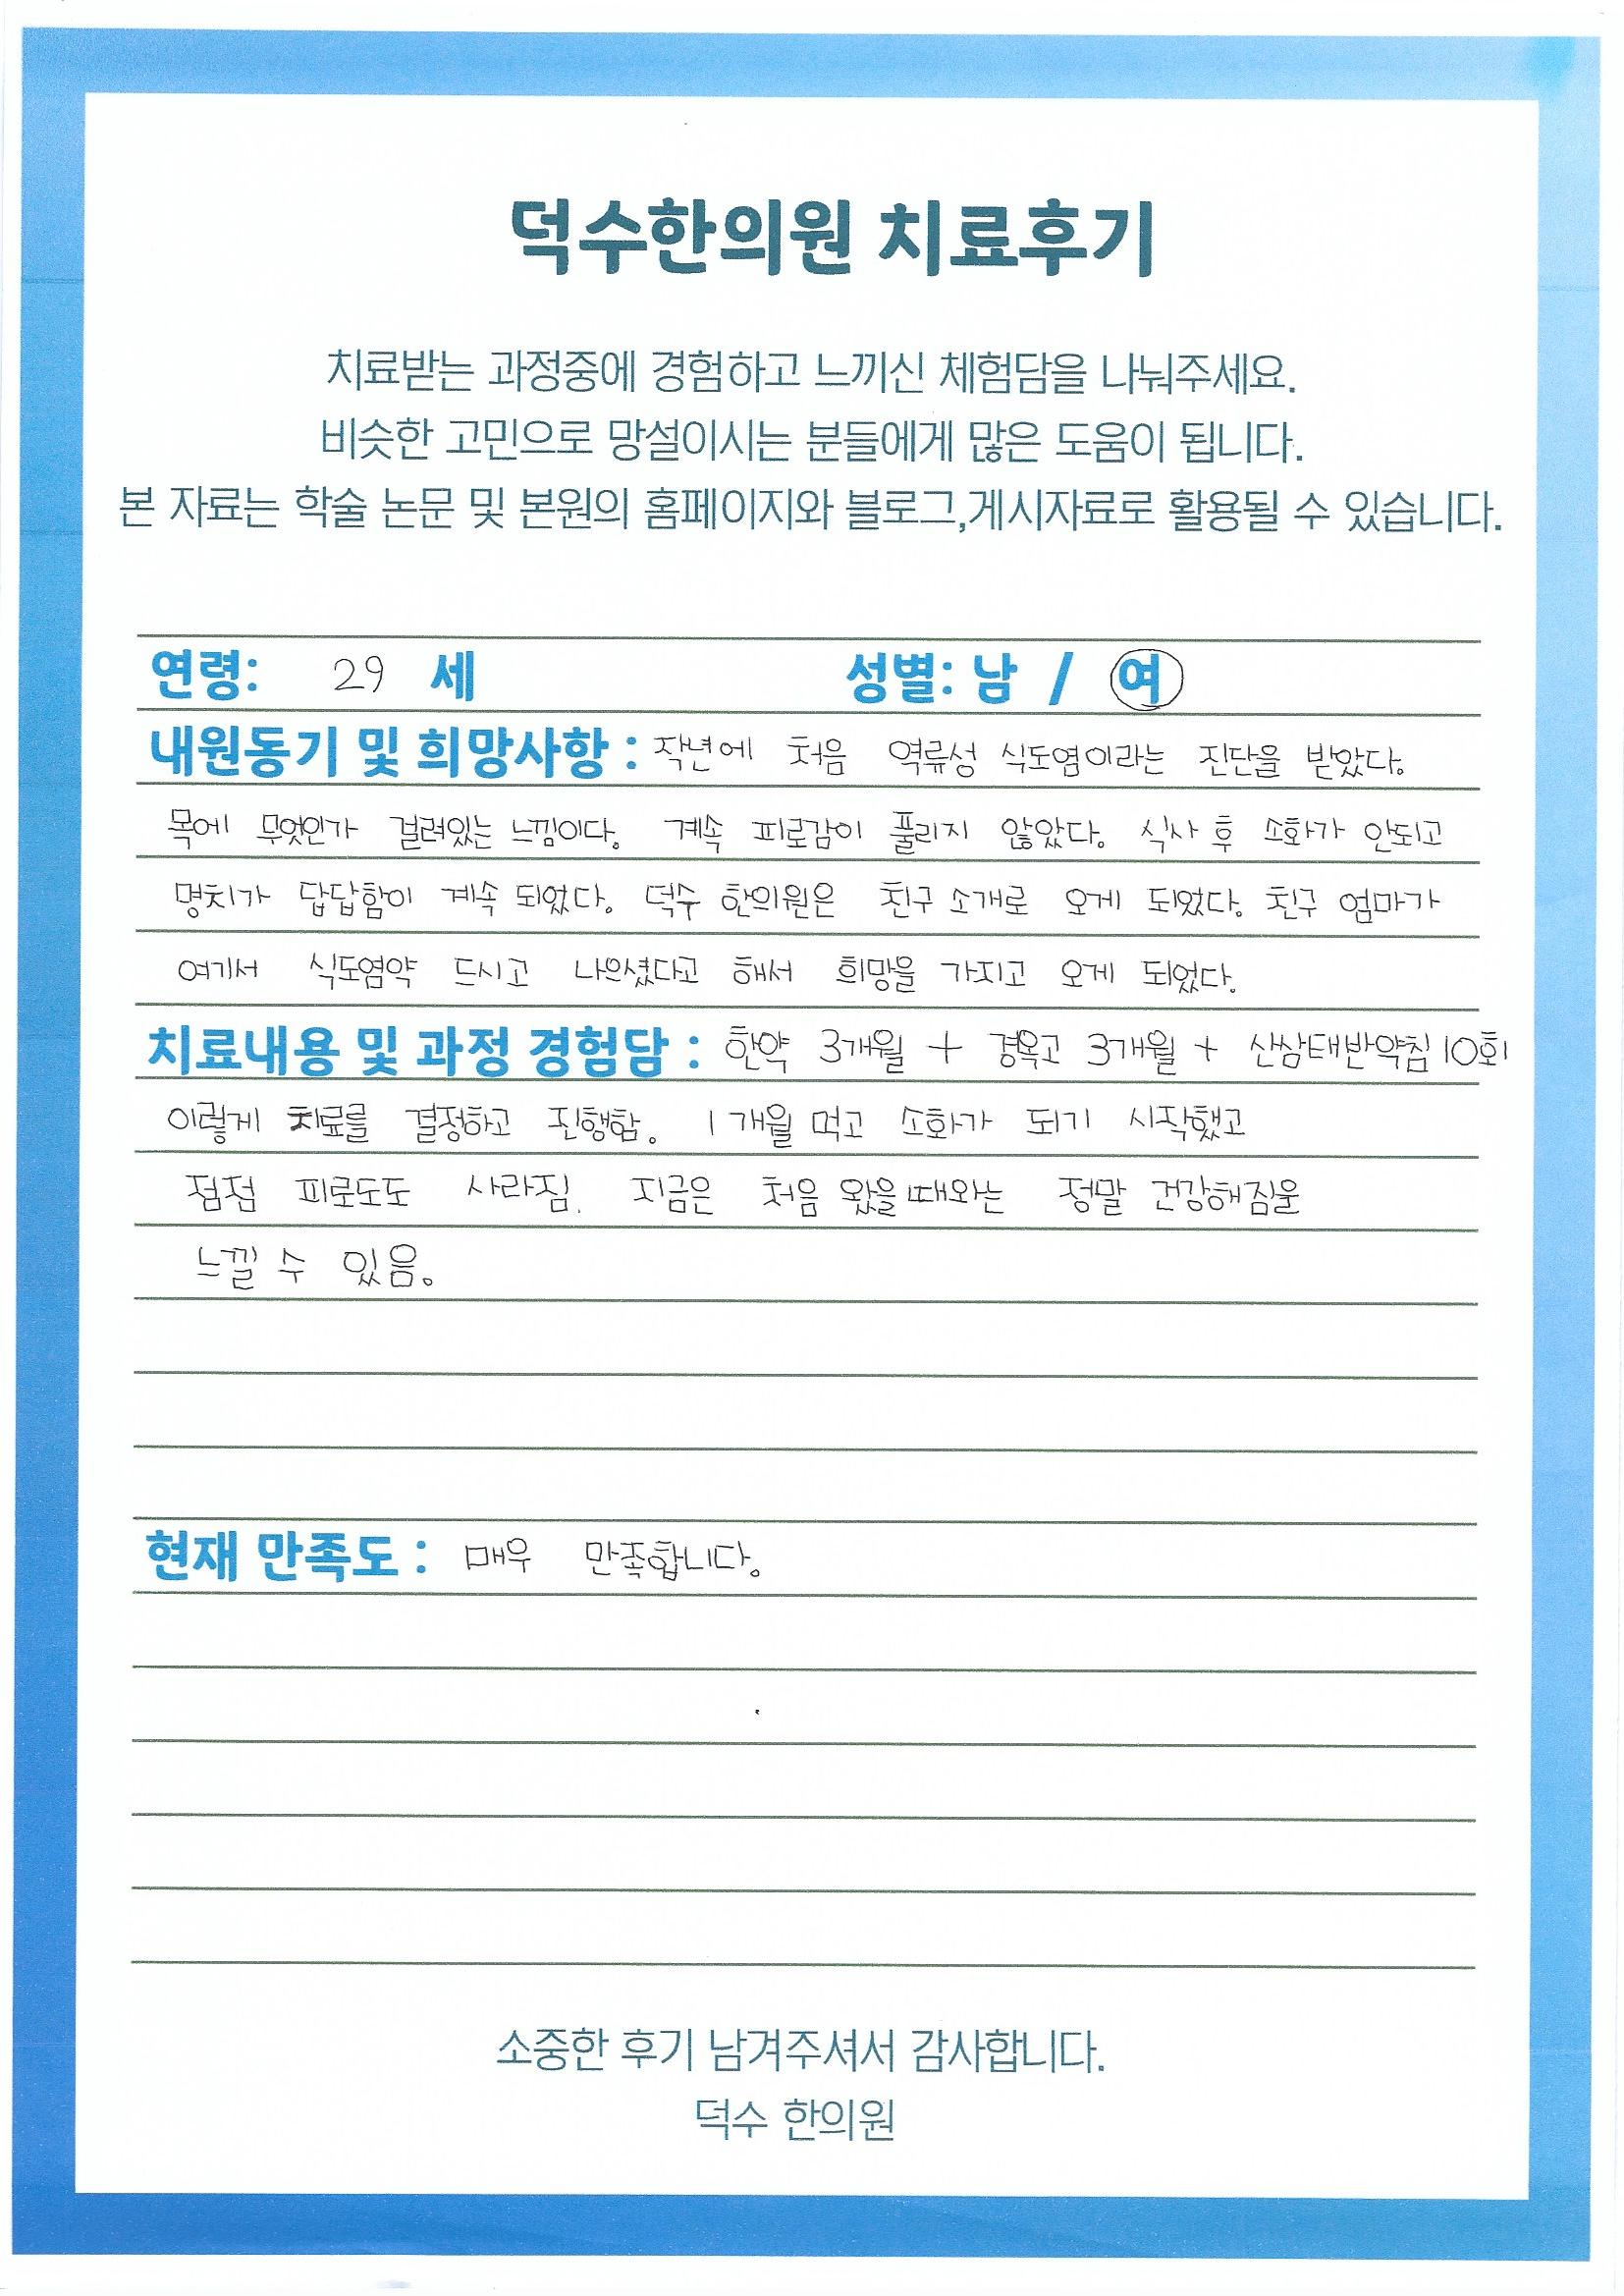 덕수한의원 치료후기
치료받는 과정중에 경험하고 느끼신 체험담을 나눠주세요.
비슷한 고민으로 망설이시는 분들에게 많은 도움이 됩니다.
본 자료는 학술 논문 및 본원의 홈페이지와 블로그,게시자료로 활용될 수 있습니다.
연령: 29 세 성별: 남 / 여
내원동기 및 희망사항 : 작년에 처음 역류성 식도염이라는 진단을 받았다.
목에 무엇인가 걸려있는 느낌이다. 계속 피로감이 풀리지 않았다. 식사 후 소화가 안되고
명치가 답답함이 계속 되었다. 덕수 한의원은 친구 소개로 오게 되었다. 친구 엄마가
여기서 식도염약 드시고 나으셨다고 해서 희망을 가지고 오게 되었다.
치료내용 및 과정 경험담 : 한약 3개월 + 경옥고 3개월 + 산삼태반약침 10회
이렇게 치료를 결정하고 진행함. 1개월 먹고 소화가 되기 시작했고
점점 피로도도 사라짐. 지금은 처음 왔을때와는 정말 건강해짐을
느낄 수 있음.
현재 만족도 : 매우 만족합니다.
소중한 후기 남겨주셔서 감사합니다.
덕수 한의원